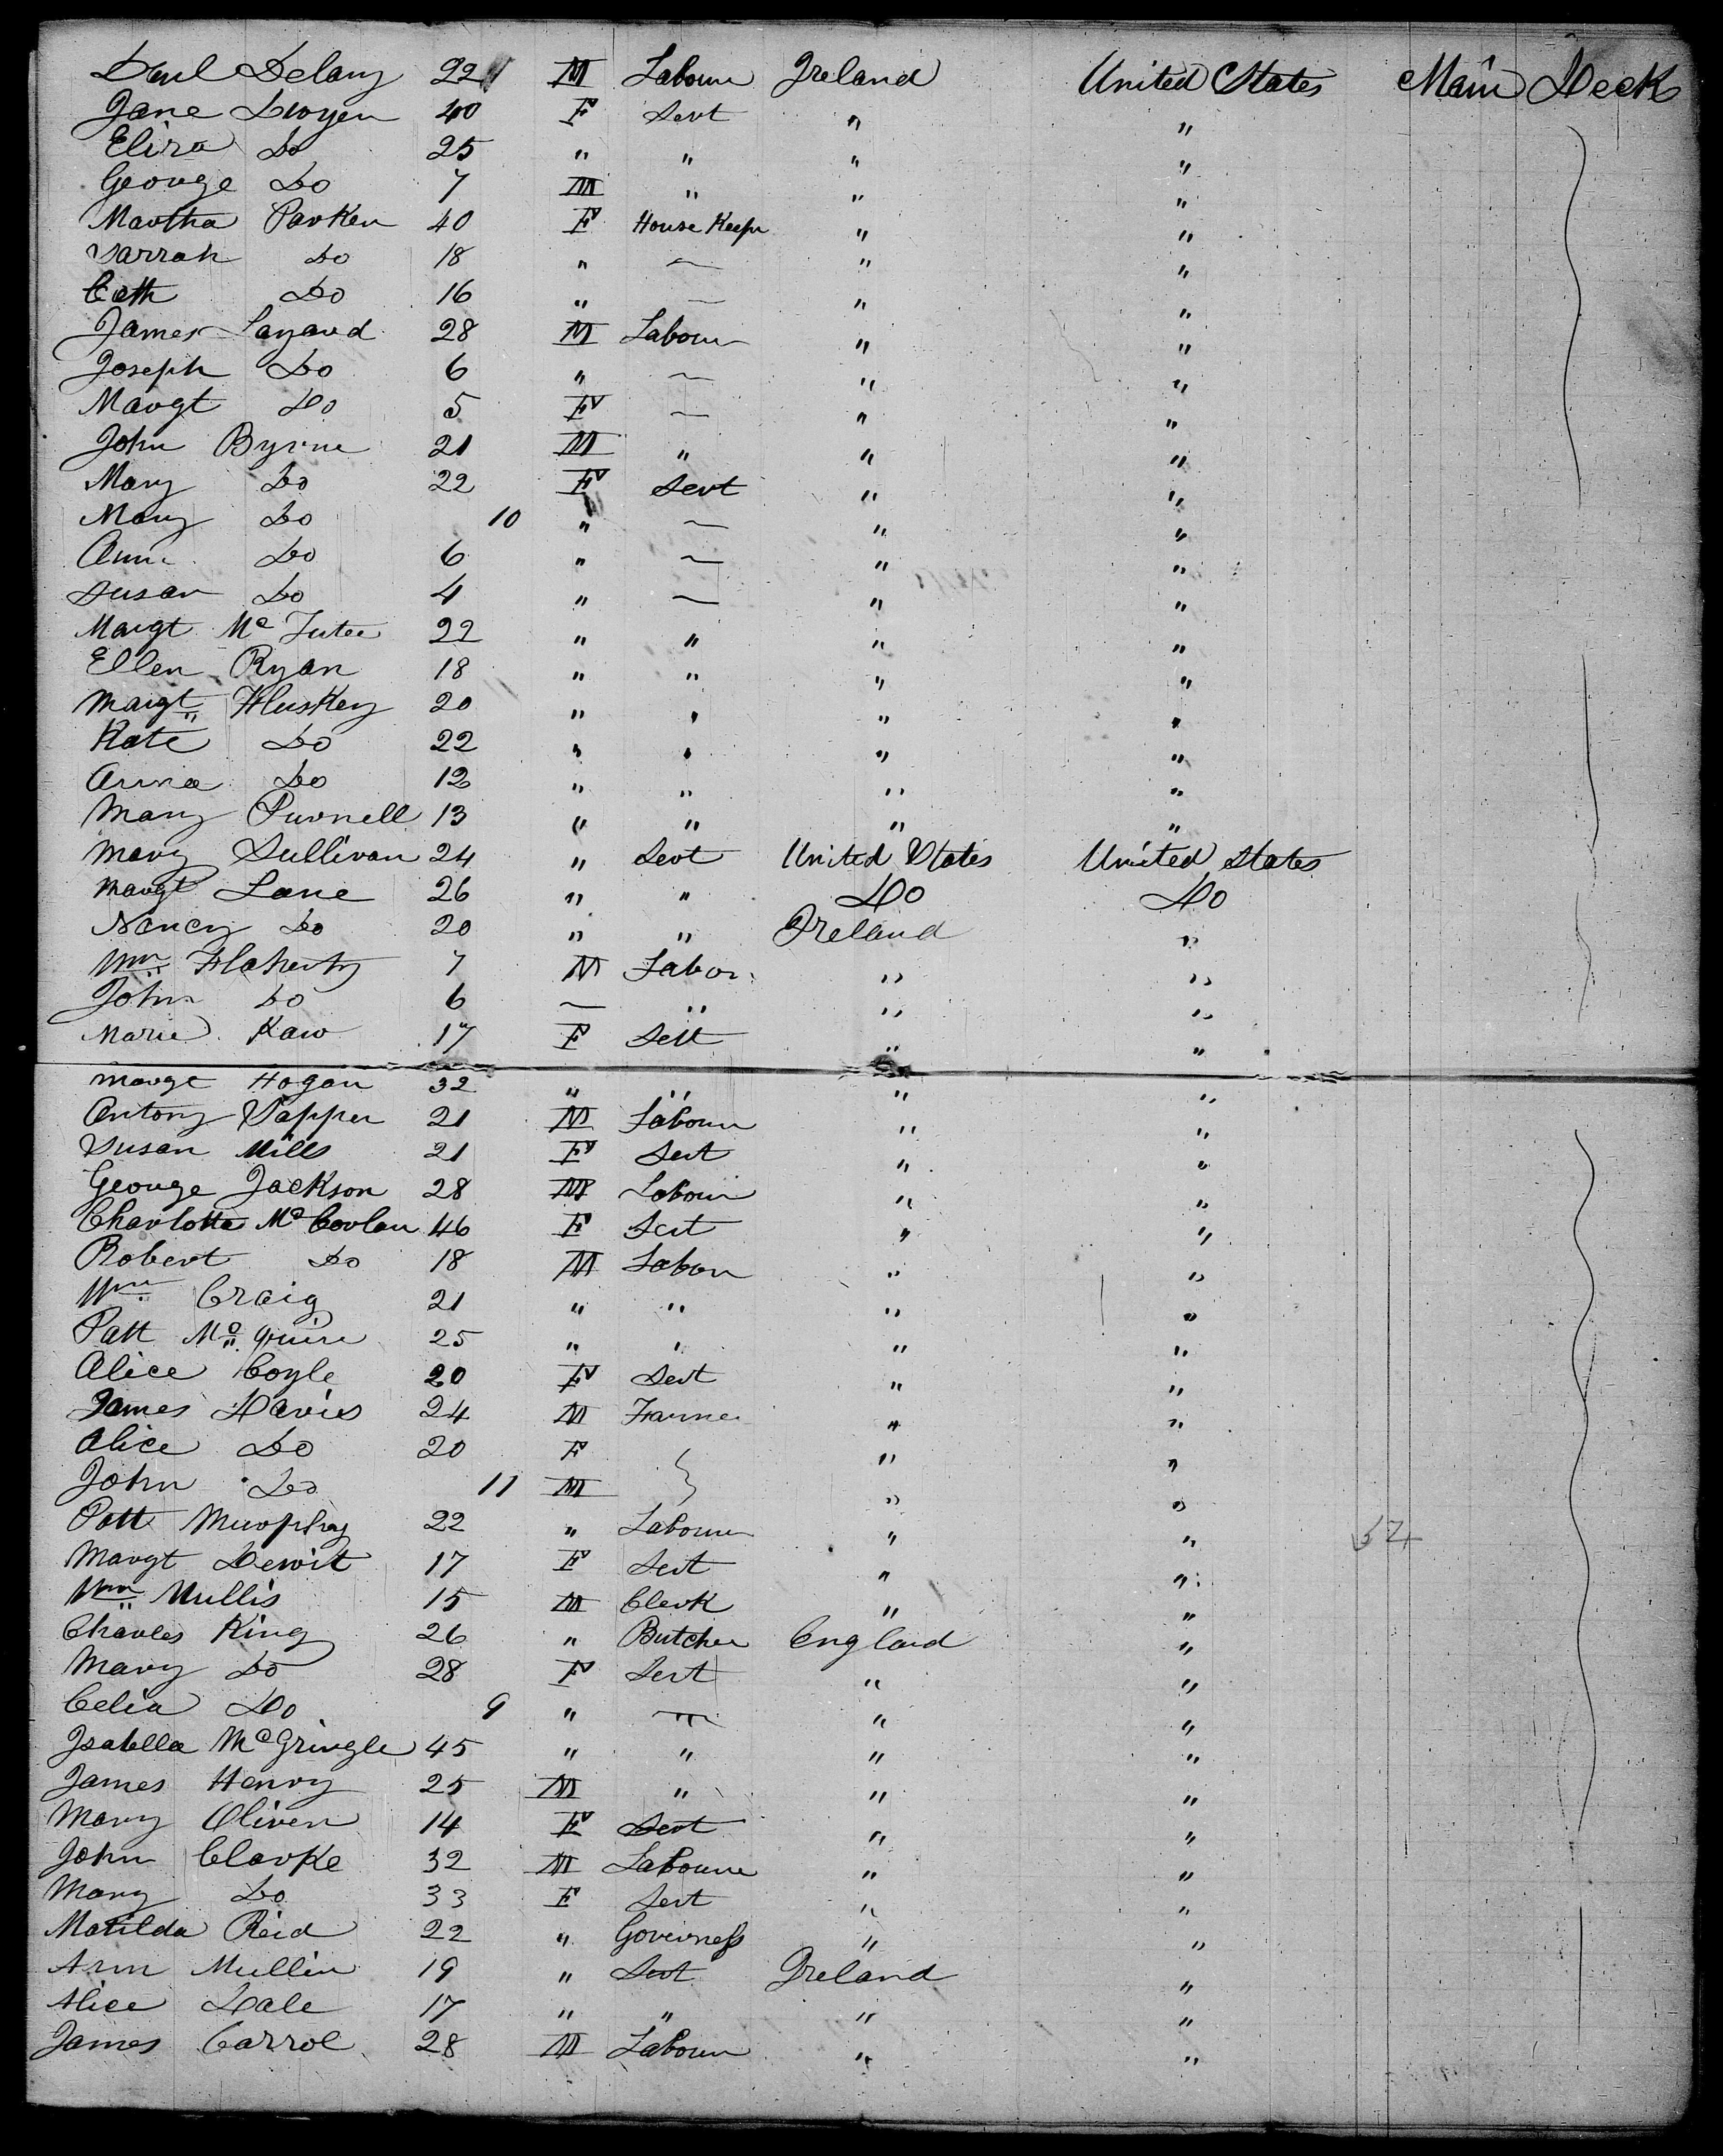 Danl Delany 22 M Labour Ireland United States Main Deck
Jane Dwyer 40 F Servt " "
Eliza Do 25 " " " "
George Do 7 M " " "
Martha Parker 40 F House Keepr " "
Sarrah Do 18 " — " "
Cath Do 16 " — " "
James 28 M Labour " "
Joseph Do 6 " — " "
Margt Do 5 F — " "
John Byrne 21 M " " "
Mary Do 22 F Servt " "
Mary Do 10 " — " "
Ann Do 6 " — " "
Susan Do 4 " — " "
Margt Mc 22 " " " "
Ellen Ryan 18 " " " "
Margt Fluskey 20 " " " "
Kate Do 22 " " " "
Anna Do 12 " " " "
Mary Purnell 13 " " " "
Mary Sullivan 24 " Servt United States United States
Margt Lane 26 " " Do Do
Nancy Do 20 " " Ireland "
Wm Flaherty 7 M Labor " "
John Do 6 — " " "
Marie Kaw 17 F Servt " "
Margt Hogan 32 " " " "
Antony Papper 21 M Labour " "
Susan Mills 21 F Servt " "
George Jackson 28 M Labour " "
Charlotte Mc Corlan 46 F Servt " "
Robert Do 18 M Labour " "
Wm Craig 21 " " " "
Patt Mc Guire 25 " " " "
Alice Coyle 20 F Servt " "
James Davies 24 M Farmer " "
Alice Do 20 F " "
John Do 11 M " "
Patt Murphy 22 " Labour " " 54
Margt Dewit 17 F Servt " "
Wm Mullis 15 M Clerk " "
Charles King 26 " Butcher England "
Mary Do 28 F Servt " "
Celia Do 9 " " " "
Isabella McGringle 45 " " " "
James Henry 25 M " " "
Mary Oliver 14 F Servt " "
John Clarke 32 M Labour " "
Mary Do 33 F Servt " "
Matilda Reid 22 " Governess " "
Ann Mullin 19 " Servt Ireland "
Alice Dale 17 " " " "
James Carrol 28 M Labour " "